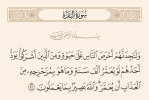 سُورَةُ البَقَرَةِ
وَلَتَجِدَنَّهُمْ أَحْرَصَ النَّاسِ عَلَىٰ حَيَوٰةٍ وَمِنَ الَّذِينَ أَشْرَكُوا۟ يَوَدُّ
أَحَدُهُمْ لَوْ يُعَمَّرُ أَلْفَ سَنَةٍ وَمَا هُوَ بِمُزَحْزِحِهِۦ مِنَ
الْعَذَابِ أَن يُعَمَّرَ وَاللَّهُ بَصِيرٌۢ بِمَا يَعْمَلُونَ